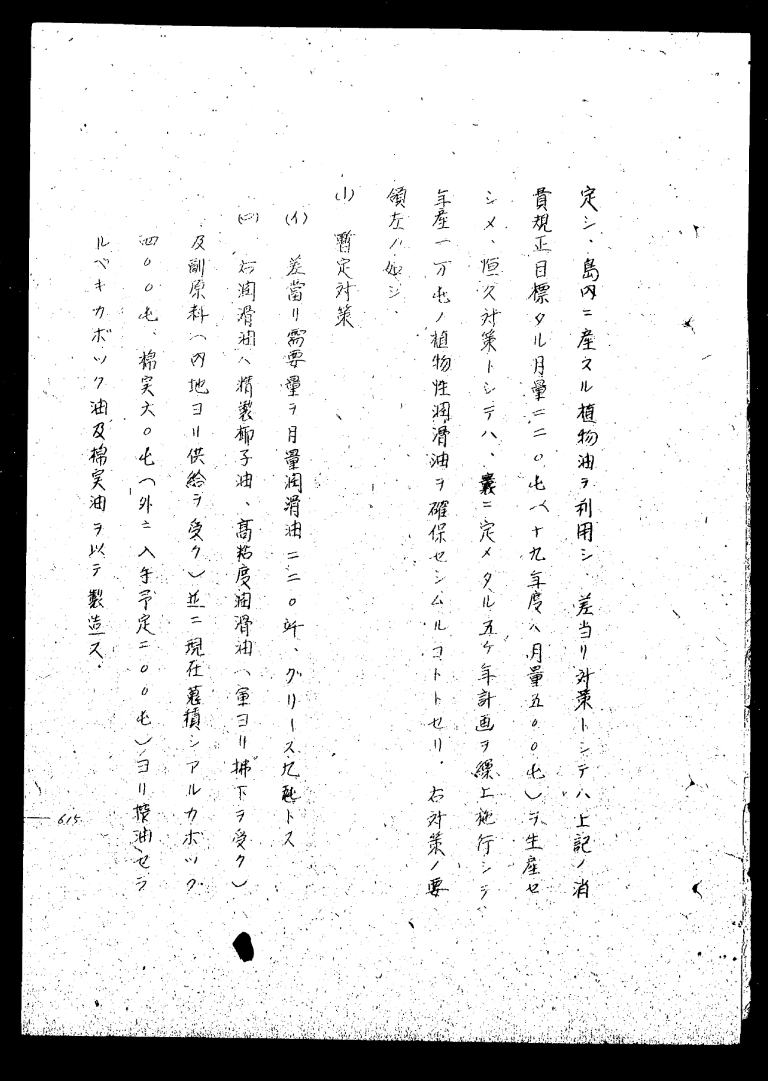 定シ、島内ニ産スル植物油ヲ利用シ、差当リ対策トシテハ上記ノ消
費規正目標タル月量二二〇屯(十九年度ハ月量五〇〇屯)ヲ生産セ
シメ、恒久対策トシテハ、曩ニ定メタル五ケ年計画ヲ繰上施行シテ
年産一万屯ノ植物性潤滑油ヲ確保センムルコトトセリ。右対策ノ要
領左ノ如シ、
(1) 暫定対策
(イ) 差當リ需要量ヲ月量潤滑油二二〇竏、グリース九瓲トス
(ロ) 右潤滑油ハ精製椰子油、高粘度潤滑油(軍ヨリ拂下ヲ受ク)
及副原料(内地ヨリ供給ヲ受ク)並ニ現在蒐積シアルカボック
四〇〇屯、棉実六〇屯(外ニ入手予定二〇〇屯)ヨリ搾油セラ
ルベキカボック油及棉実油ヲ以テ製造ス.
615